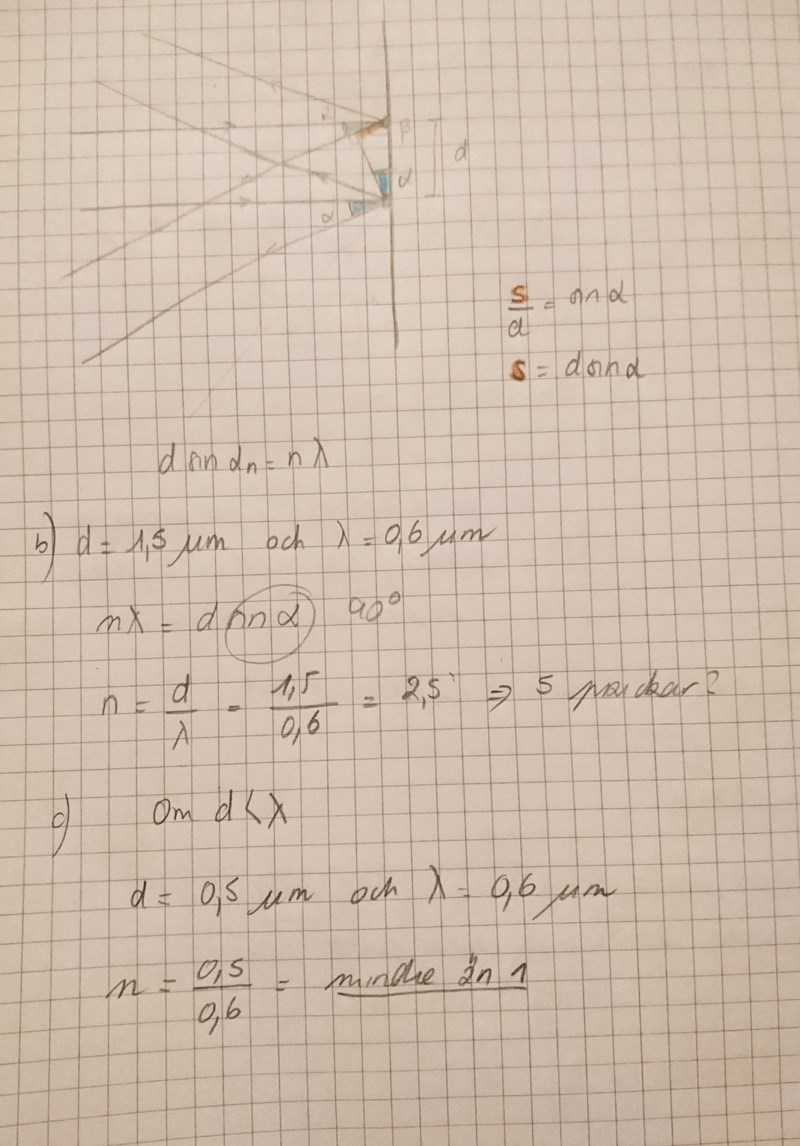 β
d
α
α
s/d = sin α
s = d sin α
d sin αn = n λ
b) d = 1,5 μm och λ = 0,6 μm
nλ = d sin α 90°
n = d/λ = 1,5/0,6 = 2,5 ⇒ 5 prickar?
c) Om d < λ
d = 0,5 μm och λ = 0,6 μm
n = 0,5/0,6 = mindre än 1